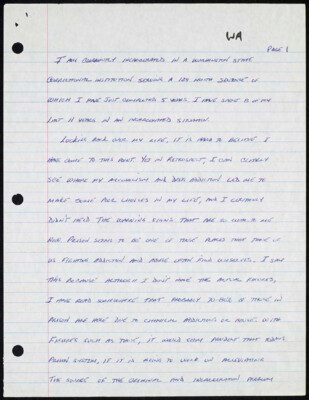 WA
PAGE 1
I AM CURRENTLY INCARCERATED IN A WASHINGTON STATE
CORRECTIONAL INSTITUTION SERVING A 129 MONTH SENTENCE OF
WHICH I HAVE JUST COMPLETED 5 YEARS. I HAVE SPENT 8 OF MY
LAST 11 YEARS IN AN INCARCERATED SITUATION.
LOOKING BACK OVER MY LIFE, IT IS HARD TO BELIEVE I
HAVE COME TO THIS POINT. YET IN RETROSPECT, I CAN CLEARLY
SEE WHERE MY ALCOHOLISM AND DRUG ADDICTION LED ME TO
MAKE SOME POOR CHOICES IN MY LIFE, AND I CERTAINLY
DIDN'T HEED THE WARNING SIGNS THAT ARE SO OBVIOUS TO ME
NOW. PRISON SEEMS TO BE ONE OF THOSE PLACES THAT THOSE OF
US FIGHTING ADDICTION AND ABUSE OFTEN FIND OURSELVES. I SAY
THIS BECAUSE ALTHOUGH I DON'T HAVE THE ACTUAL FIGURES,
I HAVE READ SOMEWHERE THAT PROBABLY OF THOSE IN
PRISON ARE HERE DUE TO ADDICTIONS OR ABUSE. WITH
FIGURES SUCH AS THIS, IT WOULD SEEM PRUDENT THAT TODAY'S
PRISON SYSTEM, IF IT IS GOING TO WORK ON
THE OF THE CRIMINAL AND INCARCERATION